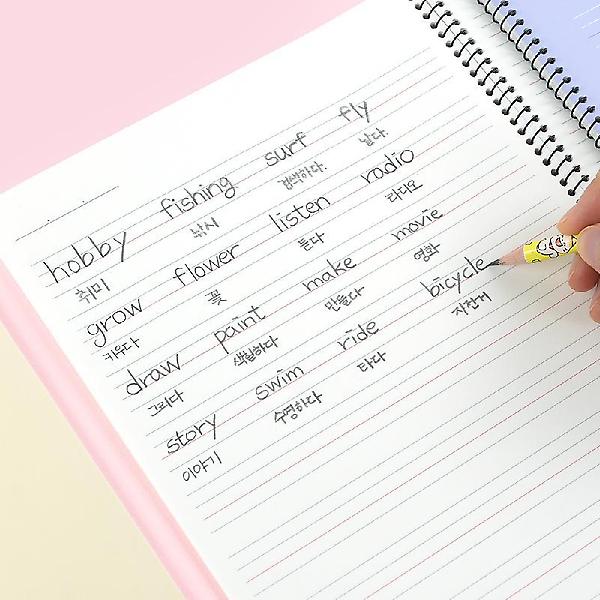 hobby fishing surf fly
취미 낚시 검색하다. 날다.
grow flower listen radio
키우다 꽃 듣다 라디오
draw paint make movie
그리다 색칠하다 만들다 영화
story swim ride bicycle
이야기 수영하다 타다 자전거